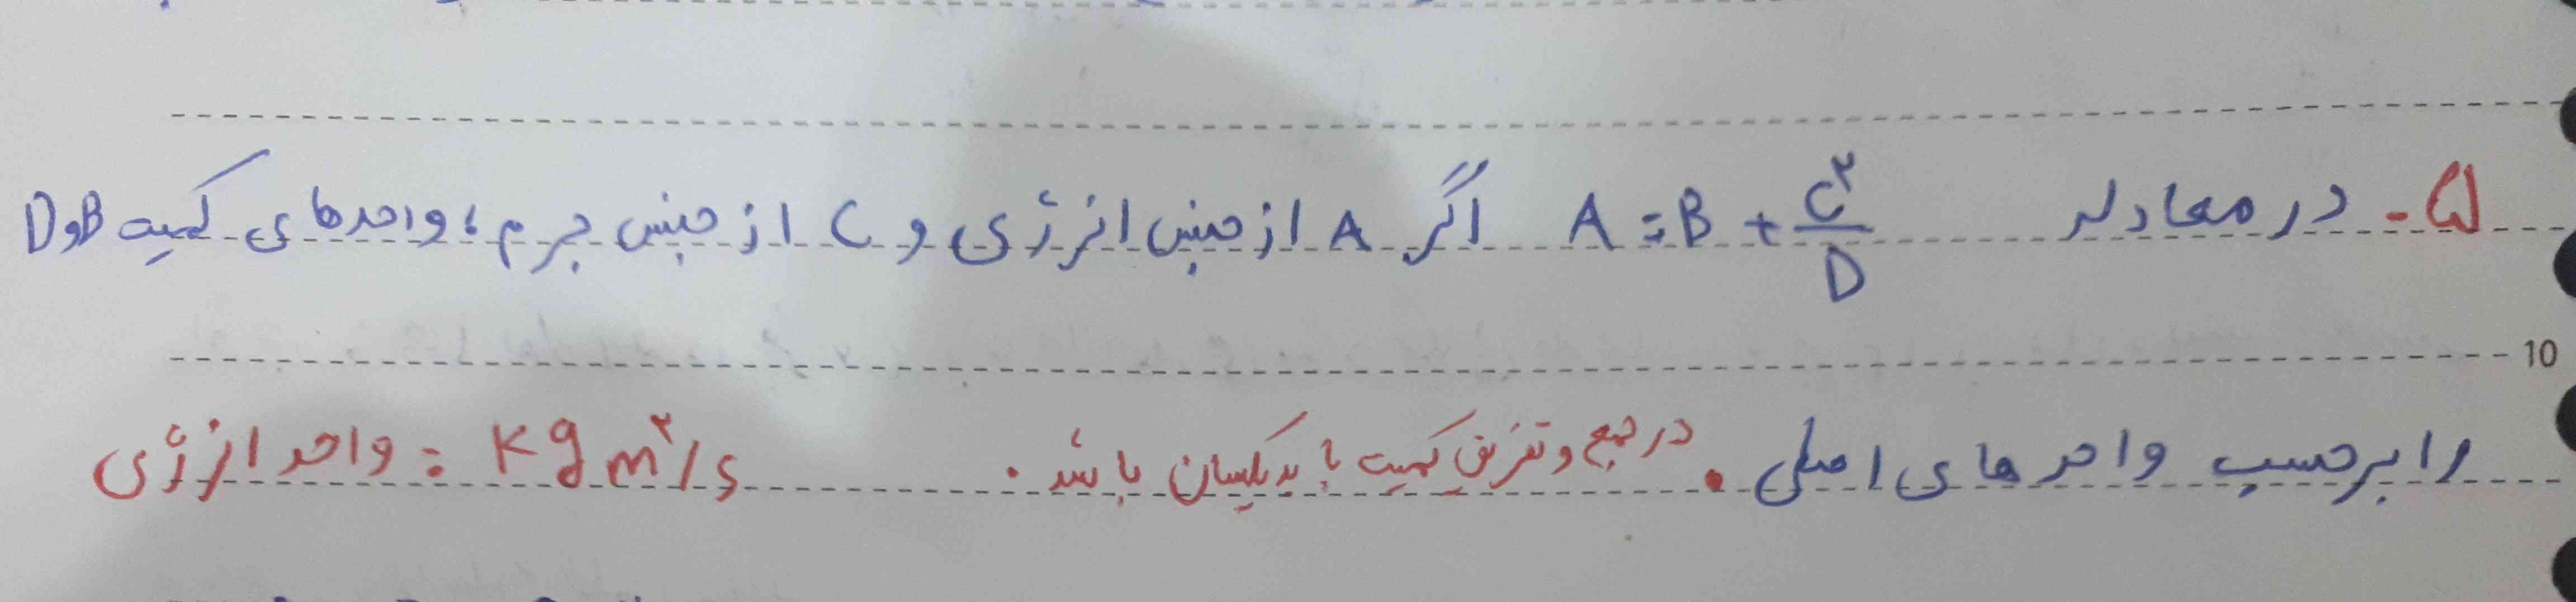 ۵- در معادله A = B + C²/D اگر A از جنس انرژی و C از جنس جرم، واحدهای کمیت B و D
10
را برحسب واحدهای اصلی. در جمع و تفریق کمیت باید یکسان باشد. kg m²/s = واحد انرژی